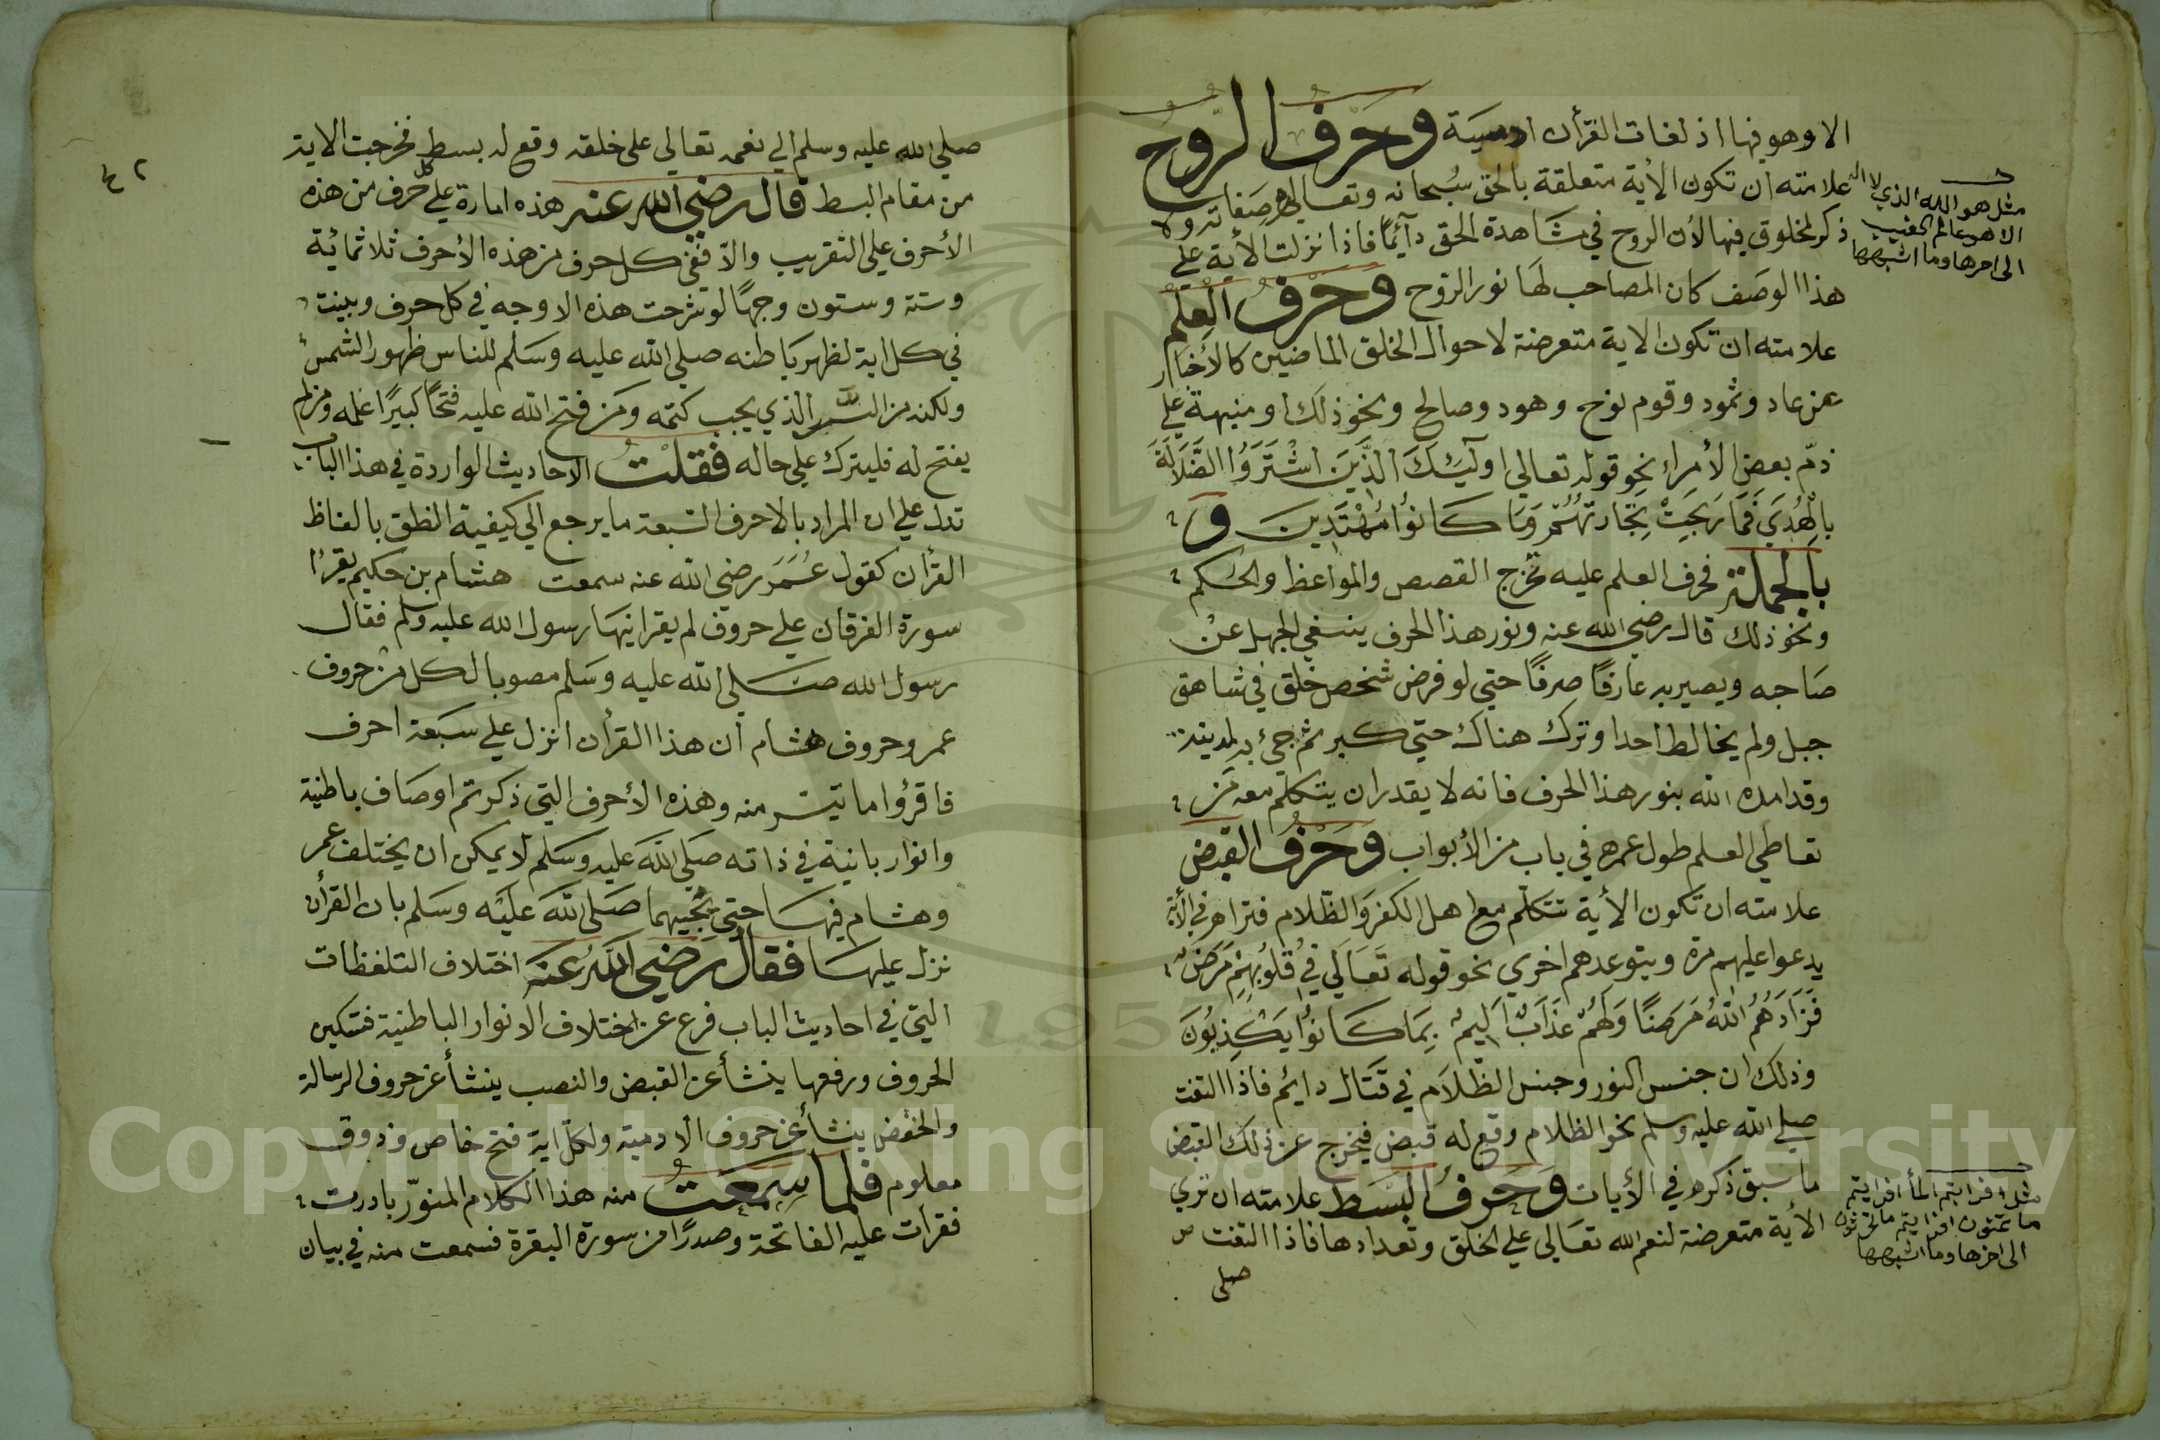 الا وهو فيها اذ لغات القرأن ادمية وحرف الروح
علامته ان تكون الأية متعلقة بالحق سبحانه وتعالى صفاته ولا
ذكر لمخلوق فيها لأن الروح في مشاهدة الحق دآئمًا فاذا نزلت الأية علي
هذا الوصف كان المصاحب لها نور الروح وحرف العلم
علامته ان تكون الاية متعرضة لاحوال الخلق الماضين كالأخبار
عن عاد وثمود وقوم نوح وهود وصالح ونحو ذلك او منبهة علي
ذمّ بعض الأمراء نحو قوله تعالي اولَيْكَ الَّذينَ اشْتَرَوُا الضَّلَالَةَ
بِالهُدَي فَمَا رَبَحَتْ تِجَارَتُهُمْ وَمَا كَانُوا مُهْتَدِينَ و
بالجملة فحرف العلم عليه تخرج القصص والمواعظ والحكم
ونحو ذلك قال رضي الله عنه ونور هذا الحرف ينفي الجهل عن
صَاحبه ويصير به عارفًا صرفًا حتي لو فرض شخص خلق في شاهق
جبل ولم يخالط احدا وترك هناك حتي كبر ثم جئ به لمدينة
وقد امده الله بنور هذا الحرف فانه لا يقدر ان يتكلم معه من
تعاطي العلم طول عمره في باب من الأبواب وحرف القبض
علامته ان تكون الأية تتكلم مع اهل الكفر والظلام فتراه في الأية
يدعوا عليهم مرة ويتوعدهم اخري نحو قوله تعَالَي في قُلوبِهِمْ مَرَضٌ
فَزَادَهُمُ اللهُ مَرَضًا وَلَهُمْ عَذَابٌ اَلِيمٌ بِمَا كَانُوا يَكْذِبُونَ
وذلك ان جنس النور وجنس الظلام في قتال دايم فاذا التفت
صلي الله عليه وسلم نحو الظلام وقع له قبض فيخرج عن ذلك القبض
ما سبق ذكره في الأيات وحرف البسط علامته ان تري
الأية متعرضة لنعم الله تعالي علي الخلق وتعدادها فاذا التفت
صلي
مثل هو الله الذي لا اله
الا هو عالم الغيب
الى اخرها وما اشبهها
مثل افرايتم الماء افرايتم
ما تمنون افرايتم ما تحرثون
الى اخرها وما اشبهها
٤٢
صلي الله عليه وسلم الي نعمه تعالي على خلقه وقع له بسط فخرجت الاية
من مقام البسط قال رضي الله عنه هذه امارة علي كل حرف من هذه
الأحرف علي التقريب والا ففي كل حرف من هذه الأحرف ثلاثمائة
وستة وستون وجهًا لو شرحت هذه الاوجه في كل حرف وبينت
في كل اية لظهر باطنه صلي الله عليه وسلم للناس ظهور الشمس
ولكنه من السر الذي يجب كتمه ومن فتح الله عليه فتحًا كبيرًا علمه ومن لم
يفتح له فليترك علي حاله فقلت الاحاديث الواردة في هذا الباب
تدل علي ان المراد بالاحرف السبعة ما يرجع الي كيفية النطق بالفاظ
القرأن كقول عُمَر رضي الله عنه سمعت هشام بن حكيم يقرا
سورة الفرقان علي حروف لم يقرانيها رسول الله عليه وسلم فقال
رسول الله صلي الله عليه وسلم مصوبا لكل من حروف
عمر وحروف هشام ان هذا القرأن انزل علي سبعة احرف
فاقرؤا ما تيسر منه وهذه الأحرف التي ذكرتم اوصاف باطنية
وانوار بانية في ذاته صلي الله عليه وسلم لا يمكن ان يختلف عمر
وهشام فيها حتي يجيبهما صلي الله عليه وسلم بان القرأن
نزل عليها فقال رضي الله عنه اختلاف التلفظات
التي في احاديث الباب فرع عن اختلاف الانوار الباطنية فتسكين
الحروف ورفعها ينشأ عن القبض والنصب ينشأ عن حروف الرسالة
والخفض ينشأ عن حروف الادمية ولكل اية فتح خاص وذوق
معلوم فلما سمعت منه هذا الكلام المنور بادرت
فقرات عليه الفاتحة وصدرًا من سورة البقرة فسمعت منه في بيان
1957
Copyright © King Saud University